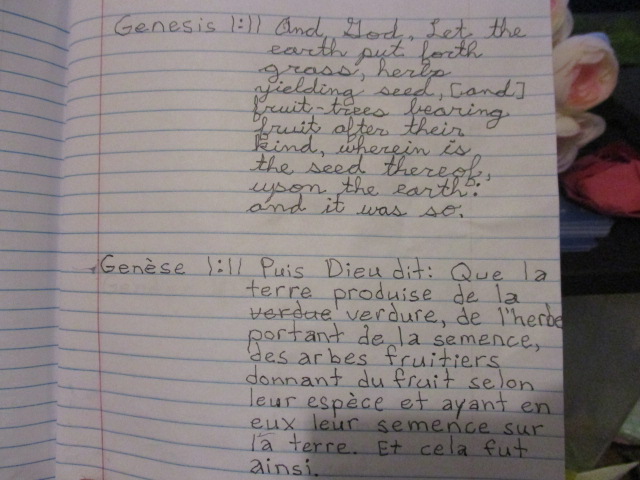 Genesis 1:11 And God, Let the
earth put forth
grass, herbs
yielding seed, [and]
fruit-trees bearing
fruit after their
kind, wherein is
the seed thereof,
upon the earth:
and it was so.
Genèse 1:11 Puis Dieu dit: Que la
terre produise de la
verdue verdure, de l'herbe
portant de la semence,
des arbes fruitiers
donnant du fruit selon
leur espèce et ayant en
eux leur semence sur
la terre. Et cela fut
ainsi.